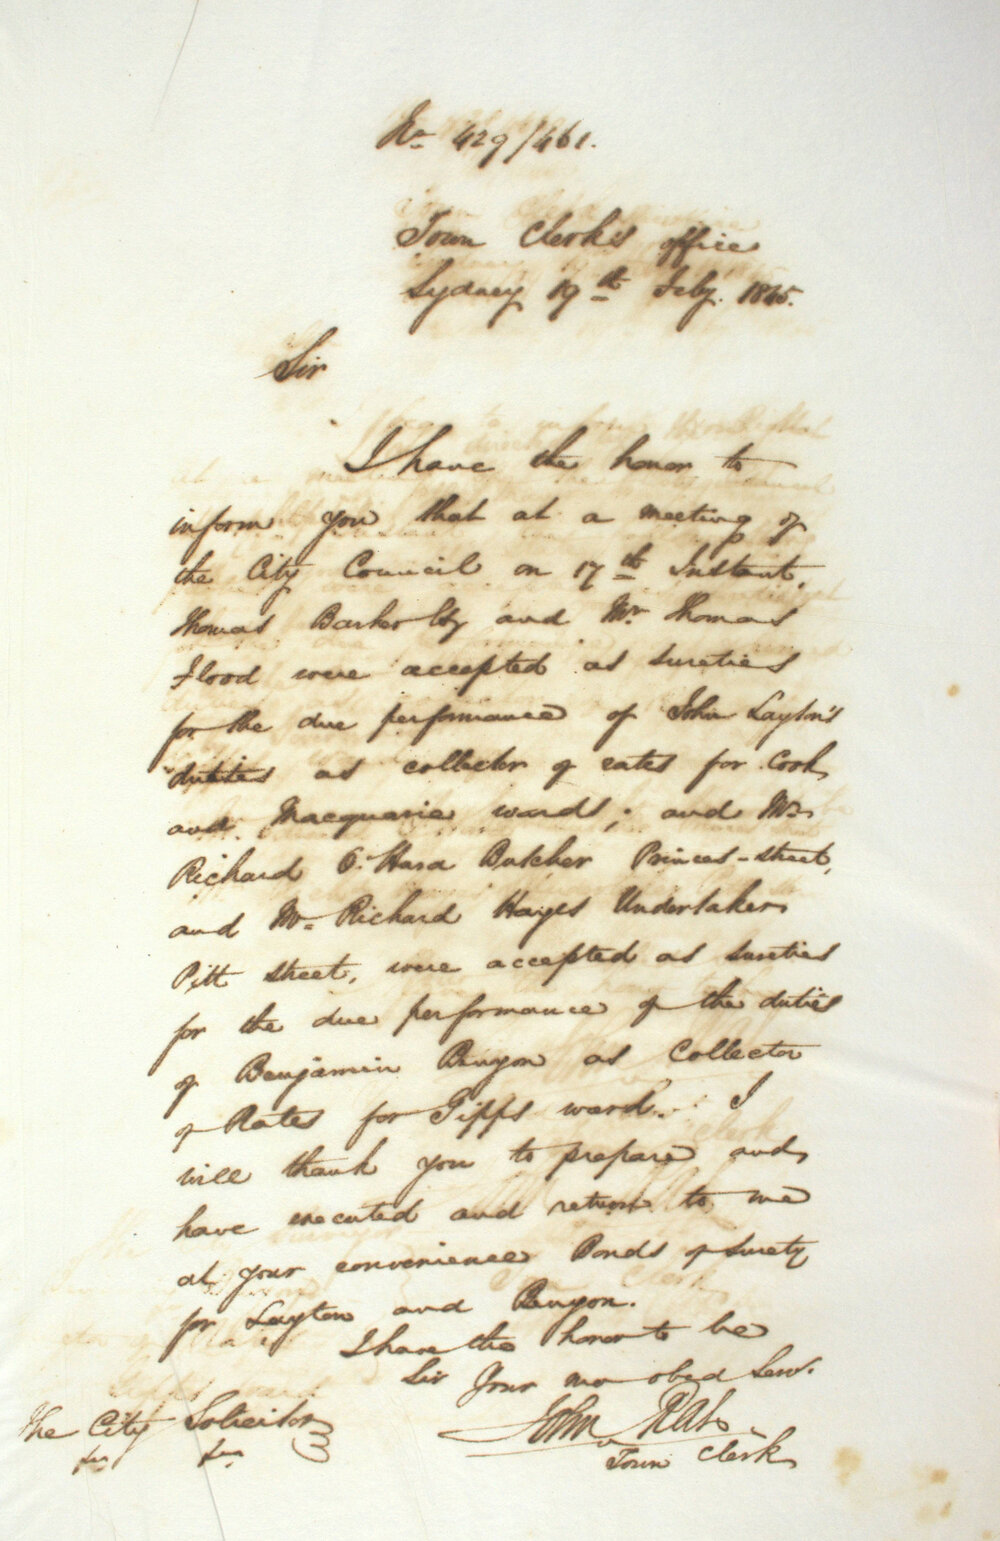 No 429/461.
Town Clerk's office
Sydney 19th Feby. 1845.
Sir
I have the honor to
inform you that at a meeting of
the City Council on 17th Instant,
Thomas Barker Esq and Mr Thomas
Flood were accepted as sureties
for the due performance of John Layton's
duties as collector of rates for Cook
and Macquarie wards; and Mr
Richard O'Hara Butcher Princes-street,
and Mr Richard Hayes Undertaker
Pitt street, were accepted as sureties
for the due performance of the duties
of Benjamin Benyon as Collector
of Rates for Gipps ward. I
will thank you to prepare and
have executed and return to me
at your convenience Bonds of Surety
for Layton and Benyon.
I have the honor to be
Sir Your mo obed Serv.
John Rae
Town Clerk
The City Solicitor